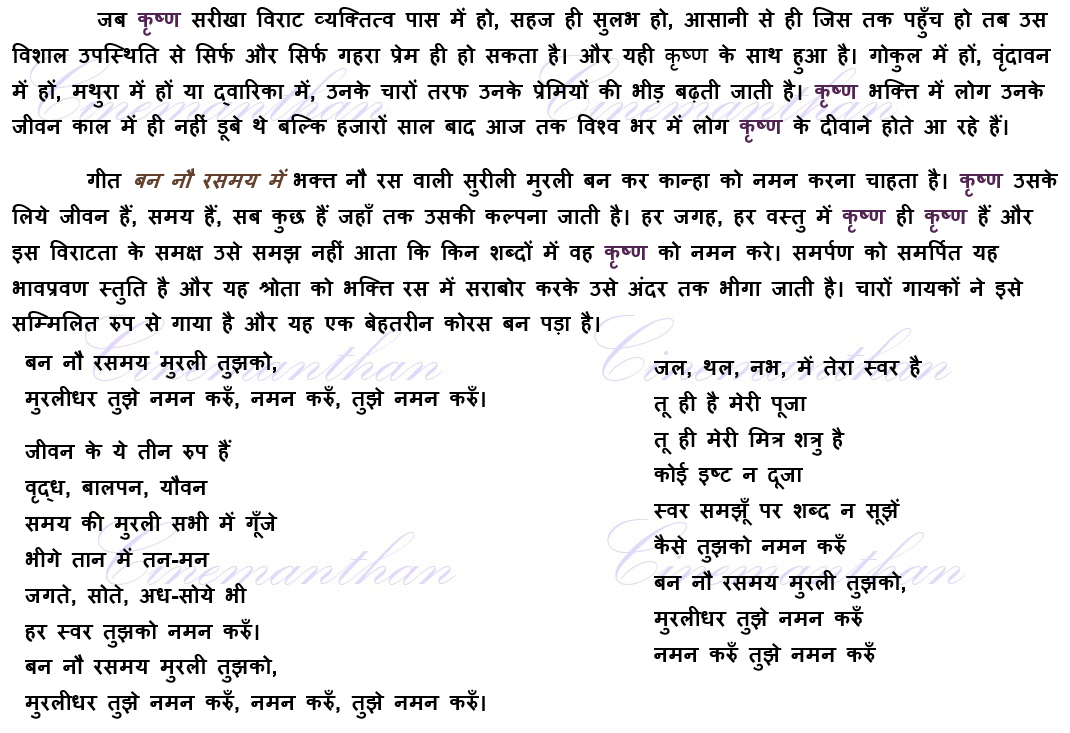 जब कृष्ण सरीखा विराट व्यक्तित्व पास में हो, सहज ही सुलभ हो, आसानी से ही जिस तक पहुँच हो तब उस
विशाल उपस्थिति से सिर्फ और सिर्फ गहरा प्रेम ही हो सकता है। और यही कृष्ण के साथ हुआ है। गोकुल में हों, वृंदावन
में हों, मथुरा में हों या द्वारिका में, उनके चारों तरफ उनके प्रेमियों की भीड़ बढ़ती जाती है। कृष्ण भक्ति में लोग उनके
जीवन काल में ही नहीं डूबे थे बल्कि हजारों साल बाद आज तक विश्व भर में लोग कृष्ण के दीवाने होते आ रहे हैं।
गीत बन नौ रसमय में भक्त नौ रस वाली सुरीली मुरली बन कर कान्हा को नमन करना चाहता है। कृष्ण उसके
लिये जीवन हैं, समय हैं, सब कुछ हैं जहाँ तक उसकी कल्पना जाती है। हर जगह, हर वस्तु में कृष्ण ही कृष्ण हैं और
इस विराटता के समक्ष उसे समझ नहीं आता कि किन शब्दों में वह कृष्ण को नमन करे। समर्पण को समर्पित यह
भावप्रवण स्तुति है और यह श्रोता को भक्ति रस में सराबोर करके उसे अंदर तक भीगा जाती है। चारों गायकों ने इसे
सम्मिलित रुप से गाया है और यह एक बेहतरीन कोरस बन पड़ा है।
बन नौ रसमय मुरली तुझको,
मुरलीधर तुझे नमन करुँ, नमन करुँ, तुझे नमन करुँ।
जीवन के ये तीन रुप हैं
वृद्ध, बालपन, यौवन
समय की मुरली सभी में गूँजे
भीगे तान में तन-मन
जगते, सोते, अध-सोये भी
हर स्वर तुझको नमन करुँ।
बन नौ रसमय मुरली तुझको,
मुरलीधर तुझे नमन करुँ, नमन करुँ, तुझे नमन करुँ।
जल, थल, नभ, में तेरा स्वर है
तू ही है मेरी पूजा
तू ही मेरी मित्र शत्रु है
कोई इष्ट न दूजा
स्वर समझूँ पर शब्द न सूझें
कैसे तुझको नमन करुँ
बन नौ रसमय मुरली तुझको,
मुरलीधर तुझे नमन करुँ
नमन करुँ तुझे नमन करुँ
Cinemanthan
Cinemanthan
Cinemanthan
Cinemanthan
Cinemanthan
Cinemanthan